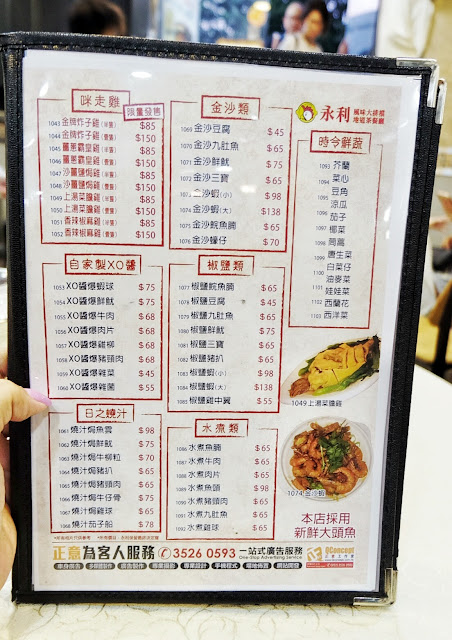 咪走雞
限量發售
1043 金牌炸子雞(半隻) $85
1044 金牌炸子雞(壹隻) $150
1045 薑蔥霸皇雞(半隻) $85
1046 薑蔥霸皇雞(壹隻) $150
1047 沙薑鹽焗雞(半隻) $85
1048 沙薑鹽焗雞(壹隻) $150
1049 上湯菜膽雞(半隻) $85
1050 上湯菜膽雞(壹隻) $150
1051 香辣椒麻雞(半隻) $85
1052 香辣椒麻雞(壹隻) $150
金沙類
1069 金沙豆腐 $45
1070 金沙九肚魚 $65
1071 金沙鮮魷 $75
1072 金沙三寶 $65
1073 金沙蝦(小) $98
1074 金沙蝦(大) $138
1075 金沙鯇魚腩 $65
1076 金沙蠔仔 $70
永利
風味大排檔
燒臘茶餐廳
時令鮮蔬
1093 芥蘭
1094 菜心
1095 豆角
1096 涼瓜
1096 茄子
1097 椰菜
1098 茼蒿
1099 唐生菜
1100 白菜仔
1101 油麥菜
1102 娃娃菜
1102 西蘭花
1103 西洋菜
自家製XO醬
1053 XO醬爆蝦球 $75
1054 XO醬爆鮮魷 $75
1055 XO醬爆牛肉 $68
1056 XO醬爆肉片 $68
1057 XO醬爆雞柳 $68
1058 XO醬爆豬頸肉 $68
1059 XO醬爆雜菜 $45
1060 XO醬爆雜菌 $55
椒鹽類
1077 椒鹽鯇魚腩 $65
1078 椒鹽豆腐 $45
1079 椒鹽九肚魚 $65
1080 椒鹽鮮魷 $75
1081 椒鹽三寶 $65
1082 椒鹽豬扒 $65
1083 椒鹽蝦(小) $98
1084 椒鹽蝦(大) $138
1085 椒鹽雞中翼 $55
1049上湯菜膽雞
日之燒汁
1061 燒汁焗魚雲 $98
1062 燒汁焗鮮魷 $75
1063 燒汁焗牛柳粒 $70
1064 燒汁焗豬扒 $65
1065 燒汁焗豬頸肉 $65
1066 燒汁焗牛仔骨 $75
1067 燒汁焗雞球 $65
1068 燒汁茄子船 $78
水煮類
1086 水煮魚腩 $65
1087 水煮牛肉 $65
1088 水煮肉片 $65
1089 水煮魚頭 $98
1090 水煮豬頸肉 $65
1091 水煮九肚魚 $65
1092 水煮雞球 $65
1074 金沙蝦
本店採用
新鮮大頭魚
正意為客人服務 3526 0593 一站式廣告服務
One-stop Advertising Service
車身廣告 多媒體製作 廣告製作 專業攝影 專業設計 手機程式 場地佈置 網站開發
QConcept